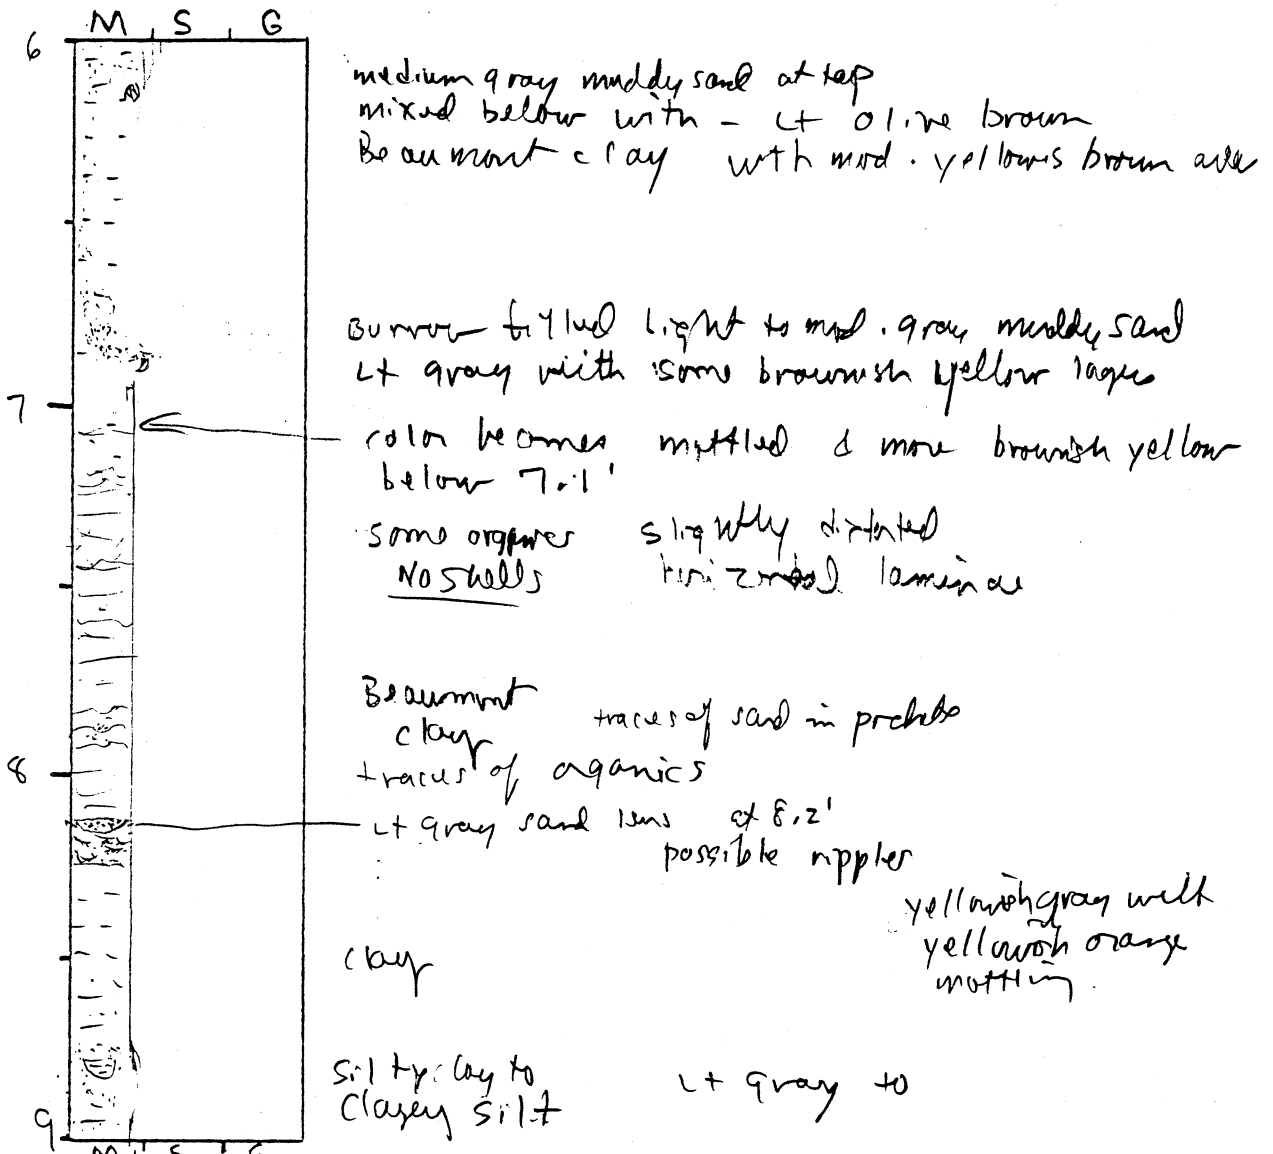 M S G
6
medium gray muddy sand at top
mixed below with - Lt olive brown
Beaumont clay with mod. yellowis brown area
Burrow filled light to mod. gray muddy sand
Lt gray with some brownish yellow layers
7
color becomes mottled & more brownish yellow
below 7.1'
some organics slightly distorted
No shells horizontal laminae
Beaumont
clay traces of sand in
8
traces of oganics
Lt gray sand lens at 8.2'
possible ripples
yellowish gray with
yellowish orange
mottling.
clay
silty clay to Lt gray to
clayey silt
9
M S G